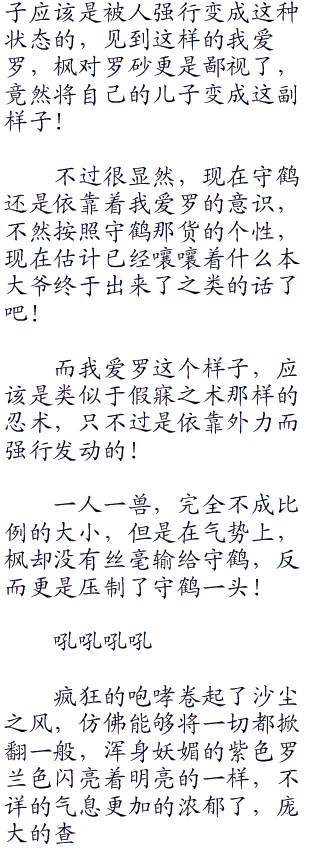 子应该是被人强行变成这种
状态的，见到这样的我爱
罗，枫对罗砂更是鄙视了，
竟然将自己的儿子变成这副
样子！
不过很显然，现在守鹤
还是依靠着我爱罗的意识，
不然按照守鹤那货的个性，
现在估计已经嚷嚷着什么本
大爷终于出来了之类的话了
吧！
而我爱罗这个样子，应
该是类似于假寐之术那样的
忍术，只不过是依靠外力而
强行发动的！
一人一兽，完全不成比
例的大小，但是在气势上，
枫却没有丝毫输给守鹤，反
而更是压制了守鹤一头！
吼吼吼吼
疯狂的咆哮卷起了沙尘
之风，仿佛能够将一切都掀
翻一般，浑身妖媚的紫色罗
兰色闪亮着明亮的一样，不
详的气息更加的浓郁了，庞
大的查